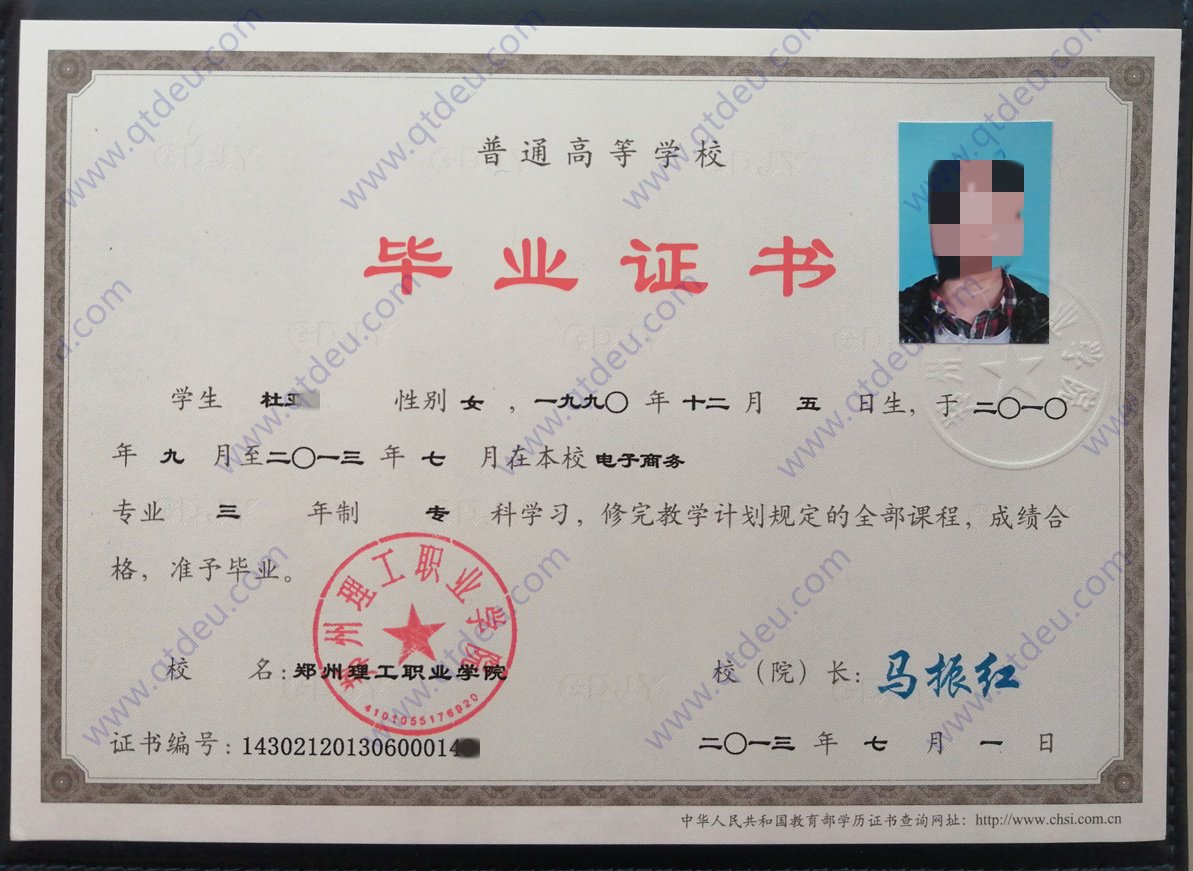 普通高等学校
毕业证书
学生 杜 性别 女 ，一九九〇 年 十二 月 五 日生，于 二〇一〇
年 九 月至二〇一三 年 七 月在本校 电子商务
专业 三 年制 专 科学习，修完教学计划规定的全部课程，成绩合
格，准予毕业。
郑州理工职业学院
4101055176920
校 名：郑州理工职业学院
校（院）长：马振红
证书编号：14302120130600014
二〇一三 年 七 月 一 日
中华人民共和国教育部学历证书查询网址：http://www.chsi.com.cn
www.qtdeu.com